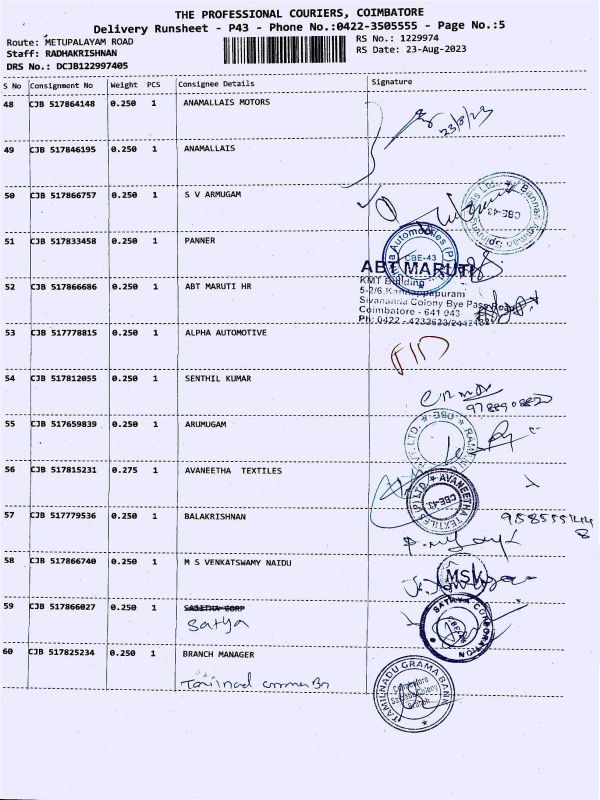 THE PROFESSIONAL COURIERS, COIMBATORE
Delivery Runsheet - P43 - Phone No.:0422-3505555 - Page No.:5
Route: METUPALAYAM ROAD
RS No.: 1229974
Staff: RADHAKRISHNAN
RS Date: 23-Aug-2023
DRS No.: DCJB122997405
S No Consignment No Weight PCS Consignee Details Signature
48 CJB 517864148 0.250 1 ANAMALLAIS MOTORS
23/8/23
49 CJB 517846195 0.250 1 ANAMALLAIS
50 CJB 517866757 0.250 1 S V ARMUGAM
CBE-43
51 CJB 517833458 0.250 1 PANNER
Automobiles (P)
CBE-43
ABT MARUTI
52 CJB 517866686 0.250 1 ABT MARUTI HR
KMT Building
5-2/6, Kannappapuram
Sivananda Colony Bye Pass Road
Coimbatore - 641 043
Ph: 0422 - 4232623/2442
53 CJB 517778815 0.250 1 ALPHA AUTOMOTIVE
54 CJB 517812055 0.250 1 SENTHIL KUMAR
55 CJB 517659839 0.250 1 ARUMUGAM
56 CJB 517815231 0.275 1 AVANEETHA TEXTILES
AVANEETHA TEXTILES (P) LTD.
CBE-43
57 CJB 517779536 0.250 1 BALAKRISHNAN
58 CJB 517866740 0.250 1 M S VENKATSWAMY NAIDU
MSV
59 CJB 517866027 0.250 1 SABITHA CORP
Satya
SATHYA CORPORATION
60 CJB 517825234 0.250 1 BRANCH MANAGER
TAMILNADU GRAMA BANK
Coimbatore
Branch